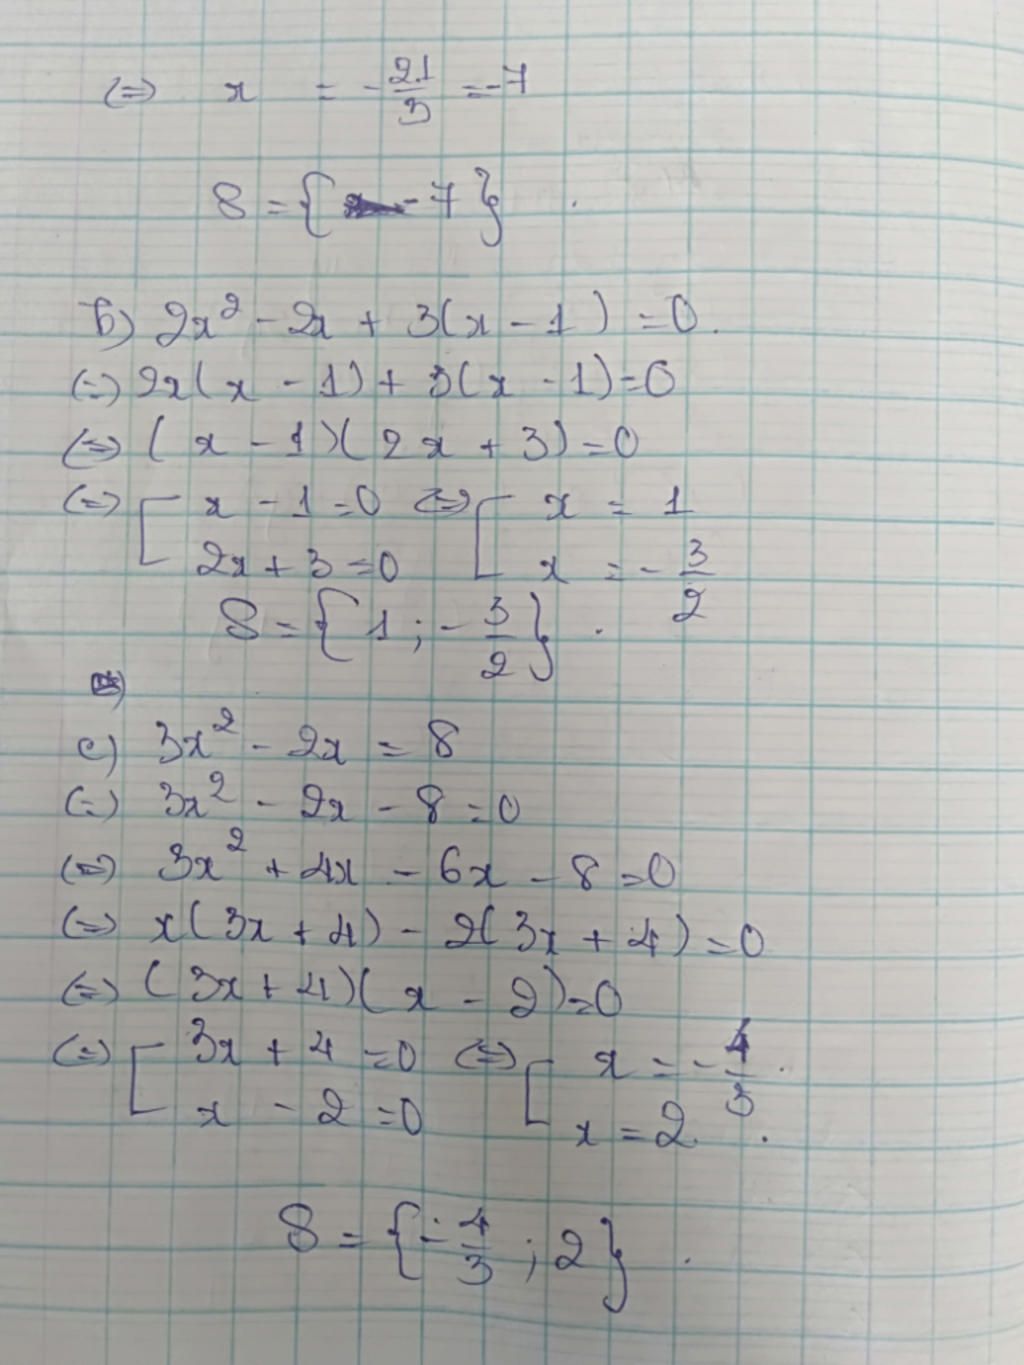 ⇔ x = -21/3 = -7
S = { -7 }
b) 2x² - 2x + 3(x - 1) = 0.
⇔ 2x(x - 1) + 3(x - 1) = 0
⇔ (x - 1)(2x + 3) = 0
⇔ [ x - 1 = 0 ⇔ [ x = 1
2x + 3 = 0 x = -3/2
S = { 1 ; -3/2 } .
c) 3x² - 2x = 8
⇔ 3x² - 2x - 8 = 0
⇔ 3x² + 4x - 6x - 8 = 0
⇔ x(3x + 4) - 2(3x + 4) = 0
⇔ (3x + 4)(x - 2) = 0
⇔ [ 3x + 4 = 0 ⇔ [ x = -4/3 .
x - 2 = 0 x = 2 .
S = { -4/3 ; 2 } .